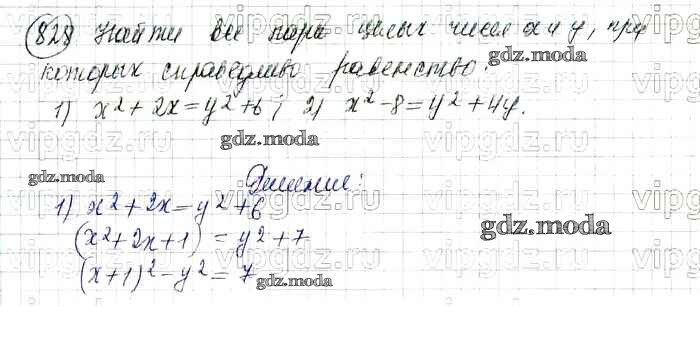 828 Найти все пары целых чисел x и y, при
которых справедливо равенство:
1) x² + 2x = y² + 6; 2) x² - 8 = y² + 4y.
Решение:
1) x² + 2x = y² + 6
(x² + 2x + 1) = y² + 7
(x + 1)² - y² = 7
vipgdz.ru
gdz.moda